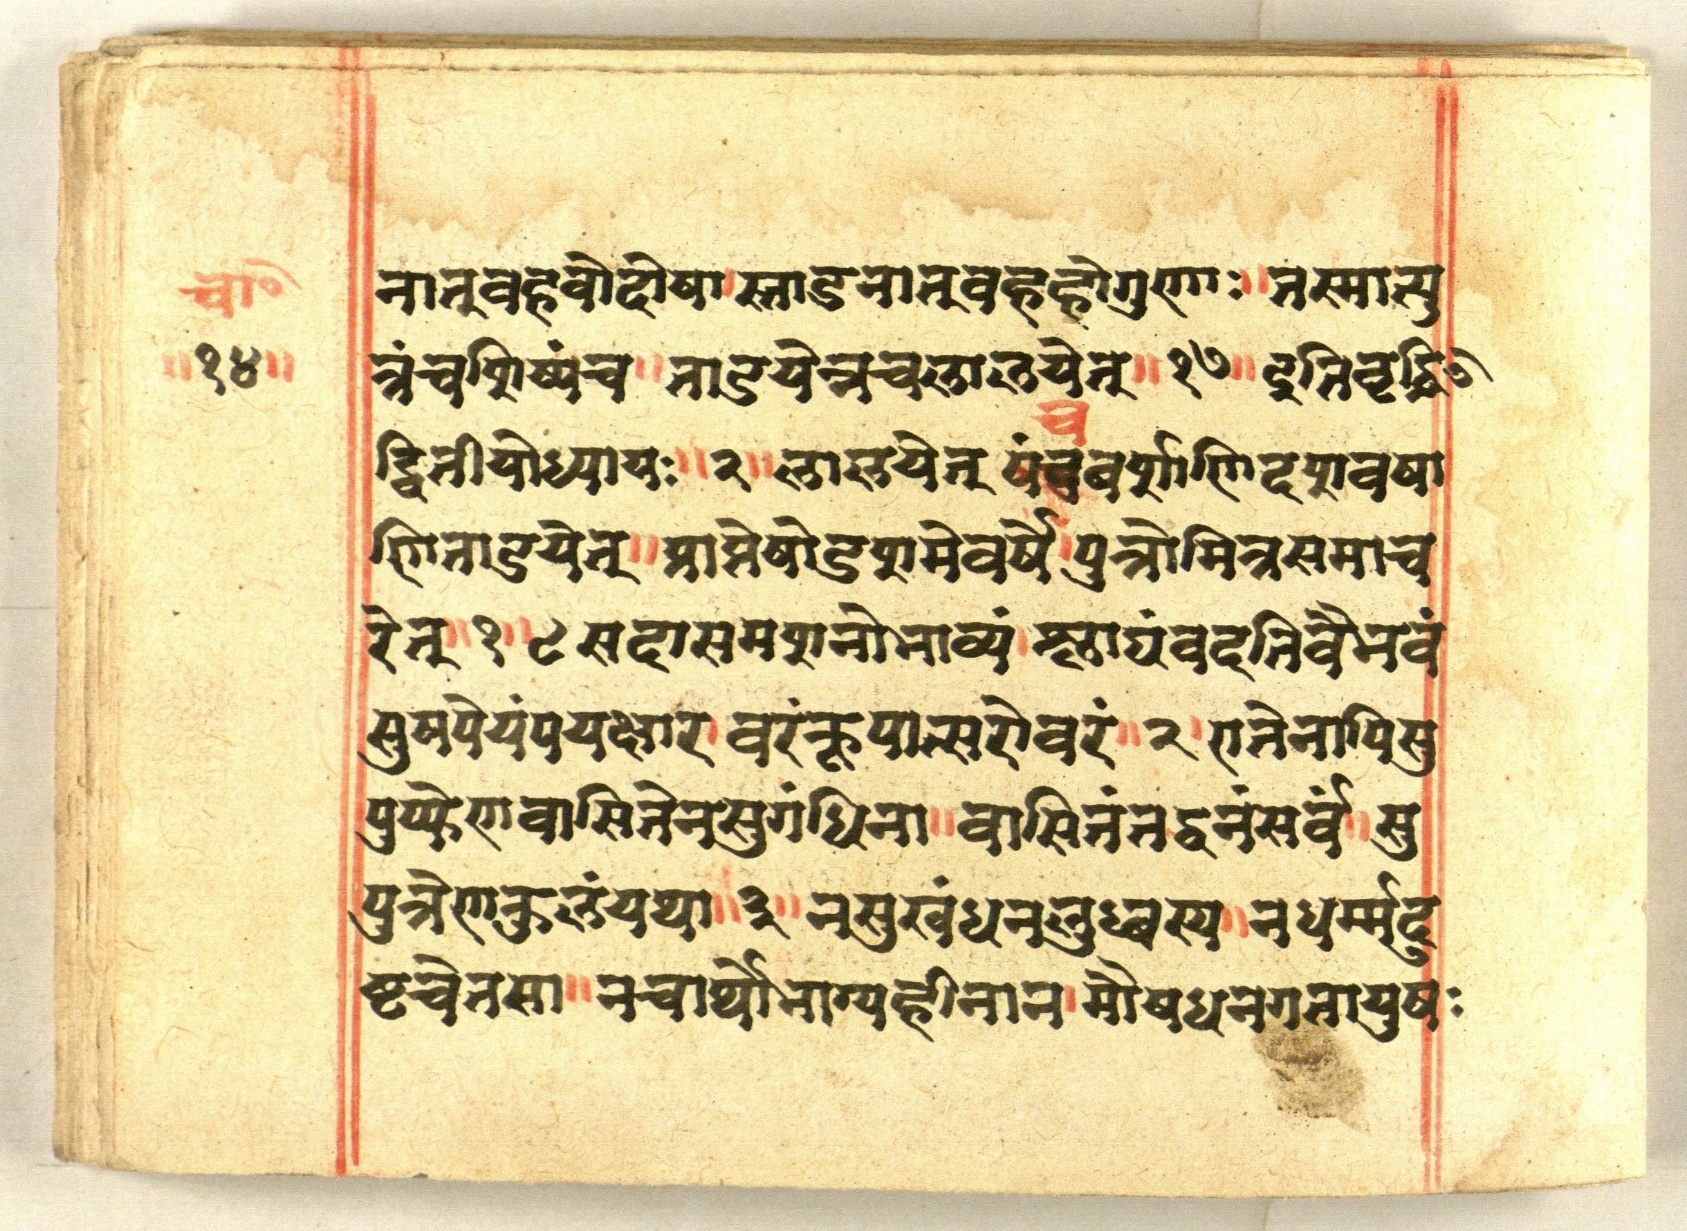 चा॰
॥१४॥
नात् वहवो दोषा । स्ताडनात् वहह्वो गुणाः ॥ तस्मात्पु
त्रं च शिष्यं च ॥ ताडयेन्न च लालयेत् ॥ १७ ॥ इति वृद्धि
द्वितीयोध्यायः ॥ २ ॥ लालयेत् पंच वर्शाणि दश वषा
च
णि ताडयेत् ॥ प्राप्ते षोडशमे वर्षै । पुत्रो मित्र समाच
रेत् ॥ १ ॥ ८ सदा समशनो भाव्यं । श्लाघ्यं वदति वै भवं
सुषपेयं पयक्षार । वरं कूपात्सरोवरं ॥ २ । णतेनापि सु
पुष्फेण वासितेन सुगंधिना ॥ वासितं तद्वनं सर्वं ॥ सु
पुत्रेण कुलं यथा ॥ ३ ॥ न सुखं धनलुब्धस्य ॥ न धर्म्म दु
ष्टचेतसा ॥ न चार्थो भाग्यहीनान । मौषध न गतायुषः